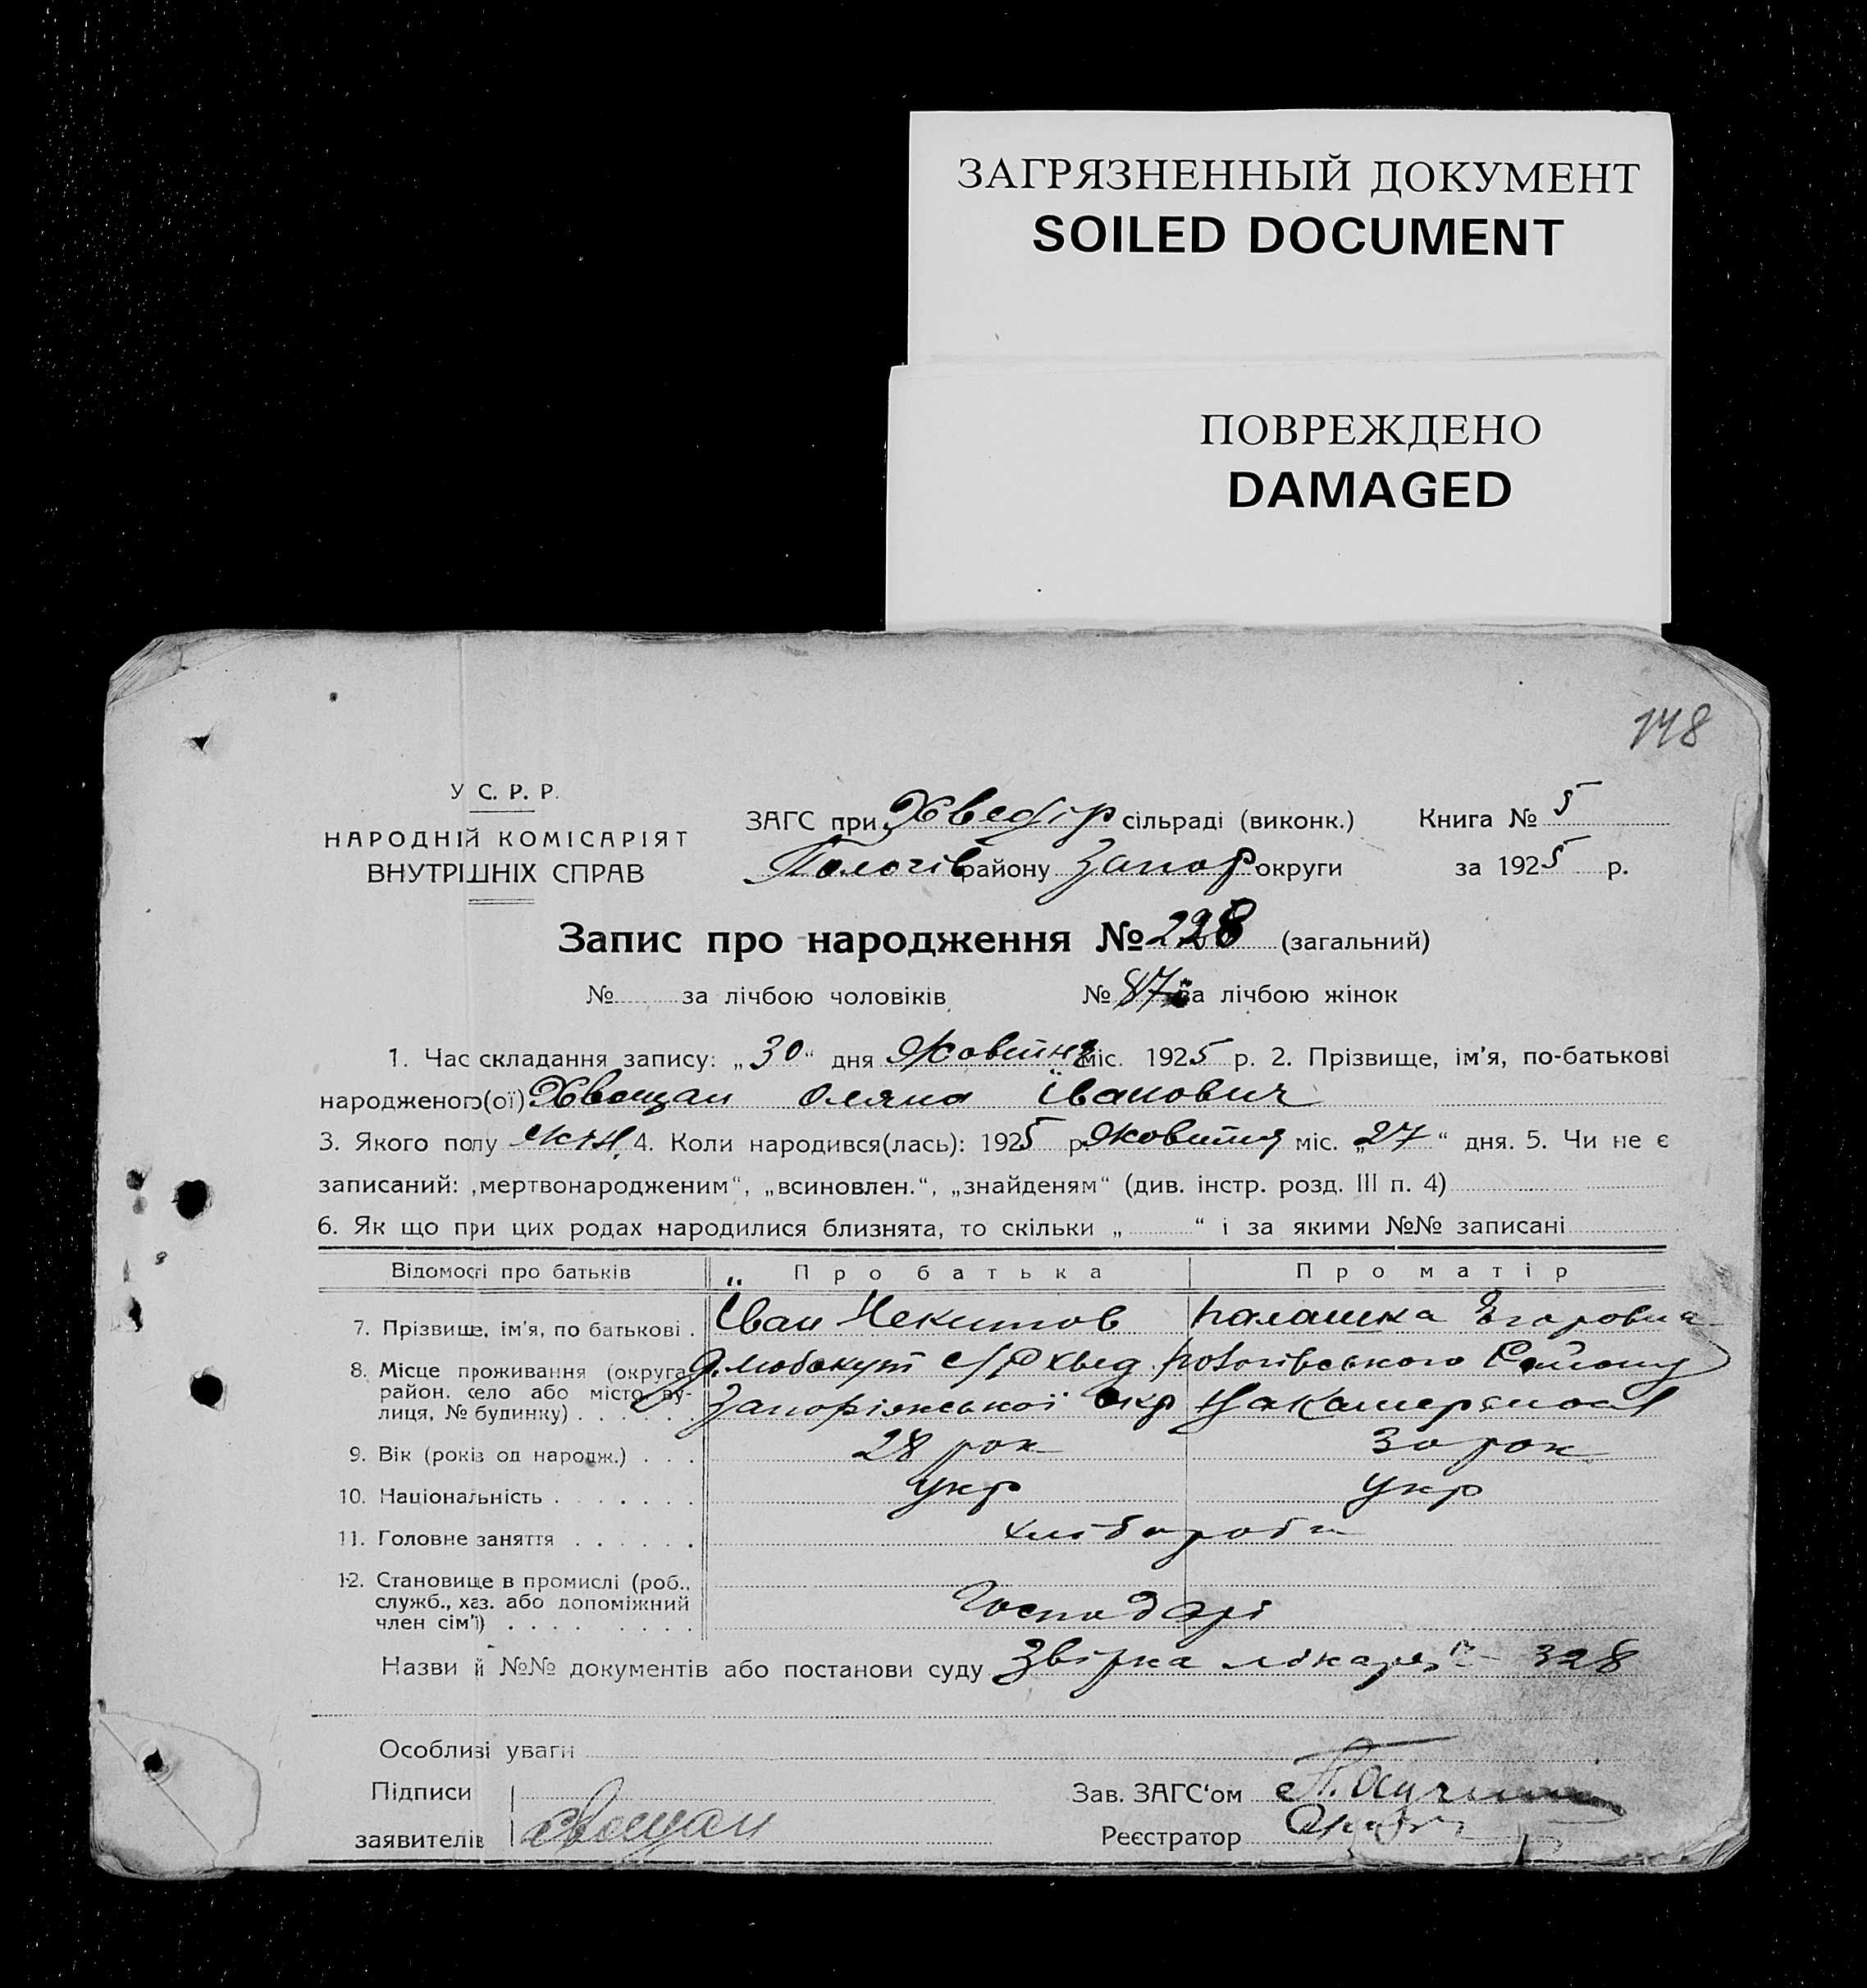 ЗАГРЯЗНЕННЫЙ ДОКУМЕНТ
SOILED DOCUMENT
ПОВРЕЖДЕНО
DAMAGED
148
У С. Р. Р.
НАРОДНІЙ КОМІСАРІЯТ
ВНУТРІШНІХ СПРАВ
ЗАГС при Хведір сільраді (виконк.) Книга № 5
Пологів району Запор округи за 1925 р.
Запис про народження № 228 (загальний)
№ за лічбою чоловіків № 87 за лічбою жінок
1. Час складання запису: „30“ дня Жовтня міс. 1925 р. 2. Прізвище, ім'я, по-батькові
народженого(ої) Хвощан Оляна Іванович
3. Якого полу жін. 4. Коли народився(лась): 1925 р. Жовтня міс. „27“ дня. 5. Чи не є
записаний: „мертвонародженим“, „всиновлен.“, „знайденям“ (див. інстр. розд. III п. 4)
6. Як що при цих родах народилися близнята, то скільки „ “ і за якими №№ записані
Відомості про батьків Про батька Про матір
7. Прізвище, ім'я, по батькові . Іван Некитов Палашка Єгоровна
8. Місце проживання (округа, район, село або місто, вулиця, № будинку) . . . . . Любокут с/р Хвед. Пологівського Району
Запоріжської окр
9. Вік (років од народж.) . . . 28 рок 30 рок
10. Національність . . . . . . . укр укр
11. Головне заняття . . . . . . хліборобы
12. Становище в промислі (роб.,
служб., хаз. або допоміжний
член сім'ї) . . . . . . . . Господарі
Назви й №№ документів або постанови суду Звірка лікаря № 328
Особливі уваги
Підписи
заявителів Хвощан
Зав. ЗАГС'ом
Реєстратор